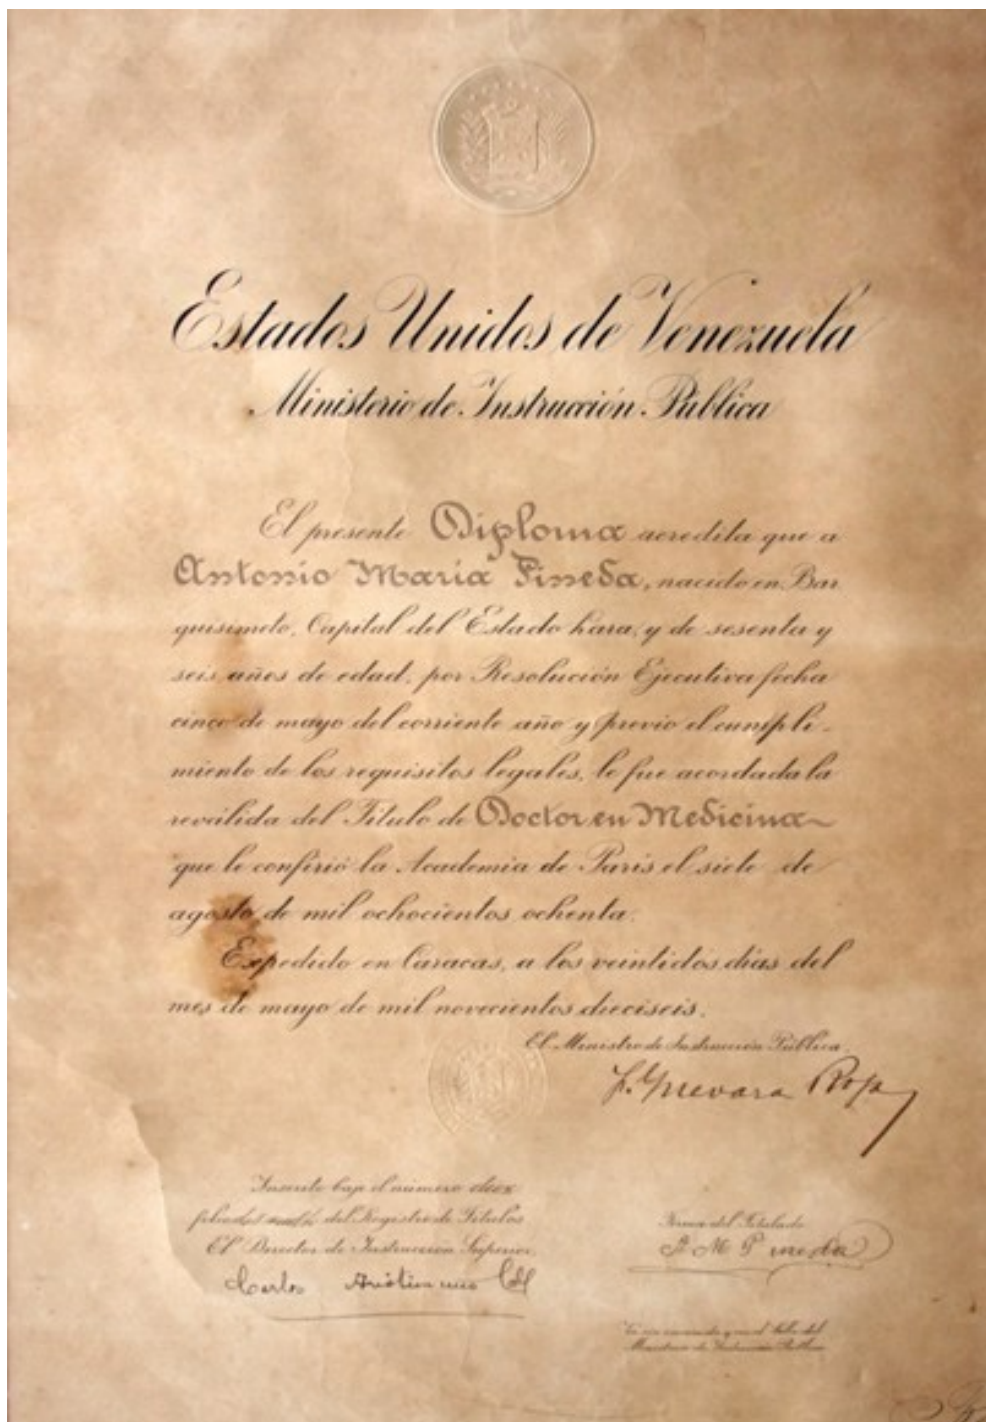 Estados Unidos de Venezuela
Ministerio de Instrucción Pública
El presente Diploma acredita que a
Antonio María Pineda, nacido en Bar
quisimeto, Capital del Estado Lara, y de sesenta y
seis años de edad, por Resolución Ejecutiva fecha
cinco de mayo del corriente año y previo el cumpli-
miento de los requisitos legales, le fue acordada la
reválida del Título de Doctor en Medicina
que le confirió la Academia de Paris el siete de
agosto de mil ochocientos ochenta.
Expedido en Caracas, a los veintidos días del
mes de mayo de mil novecientos dieciseis.
El Ministro de Instrucción Pública,
F. Guevara Rojas
Inscrito bajo el número doce
del Registro de Títulos
El Director de Instrucción Superior,
Carlos
Firma del Titulado
A M Pineda
Ministerio de Instrucción Pública